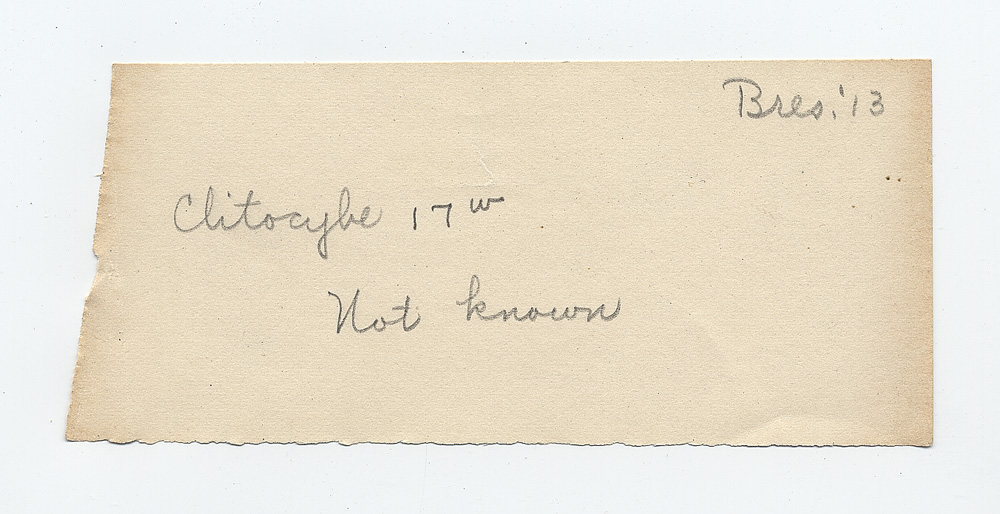 Bres. '13
Clitocybe 17 w
Not known